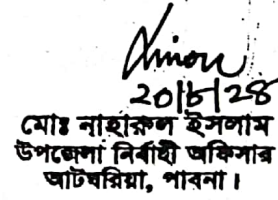 20/6/24
মোঃ নাহারুল ইসলাম
উপজেলা নির্বাহী অফিসার
আটঘরিয়া, পাবনা।